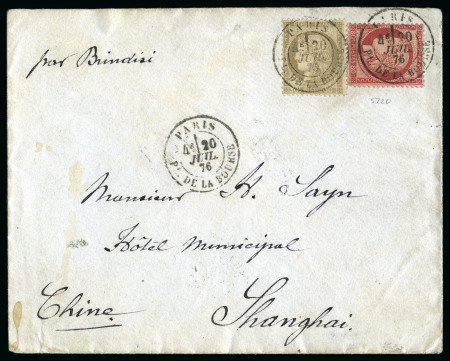 par Brindisi
PARIS
4E 20
JUIL.
76
PL. DE LA BOURSE
PARIS
4E 20
JUIL.
76
PL. DE LA BOURSE
PARIS
4E 20
JUIL.
76
PL. DE LA BOURSE
Monsieur H. Sayn
Hôtel Municipal
Chine.
Shanghai.